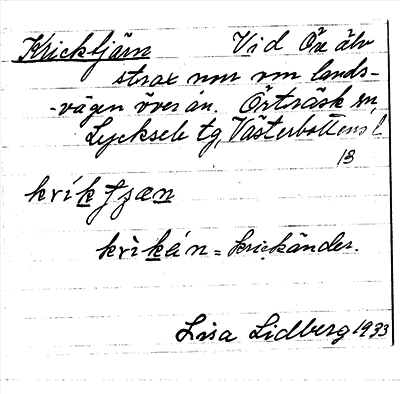 Kricktjärn Vid Öre älv
strax norr om lands-
-vägen över ån. Örträsk sn,
Lycksele tg, Västerbottens l
13
krikẹ́n = krickänder.
Lisa Lidberg 1933